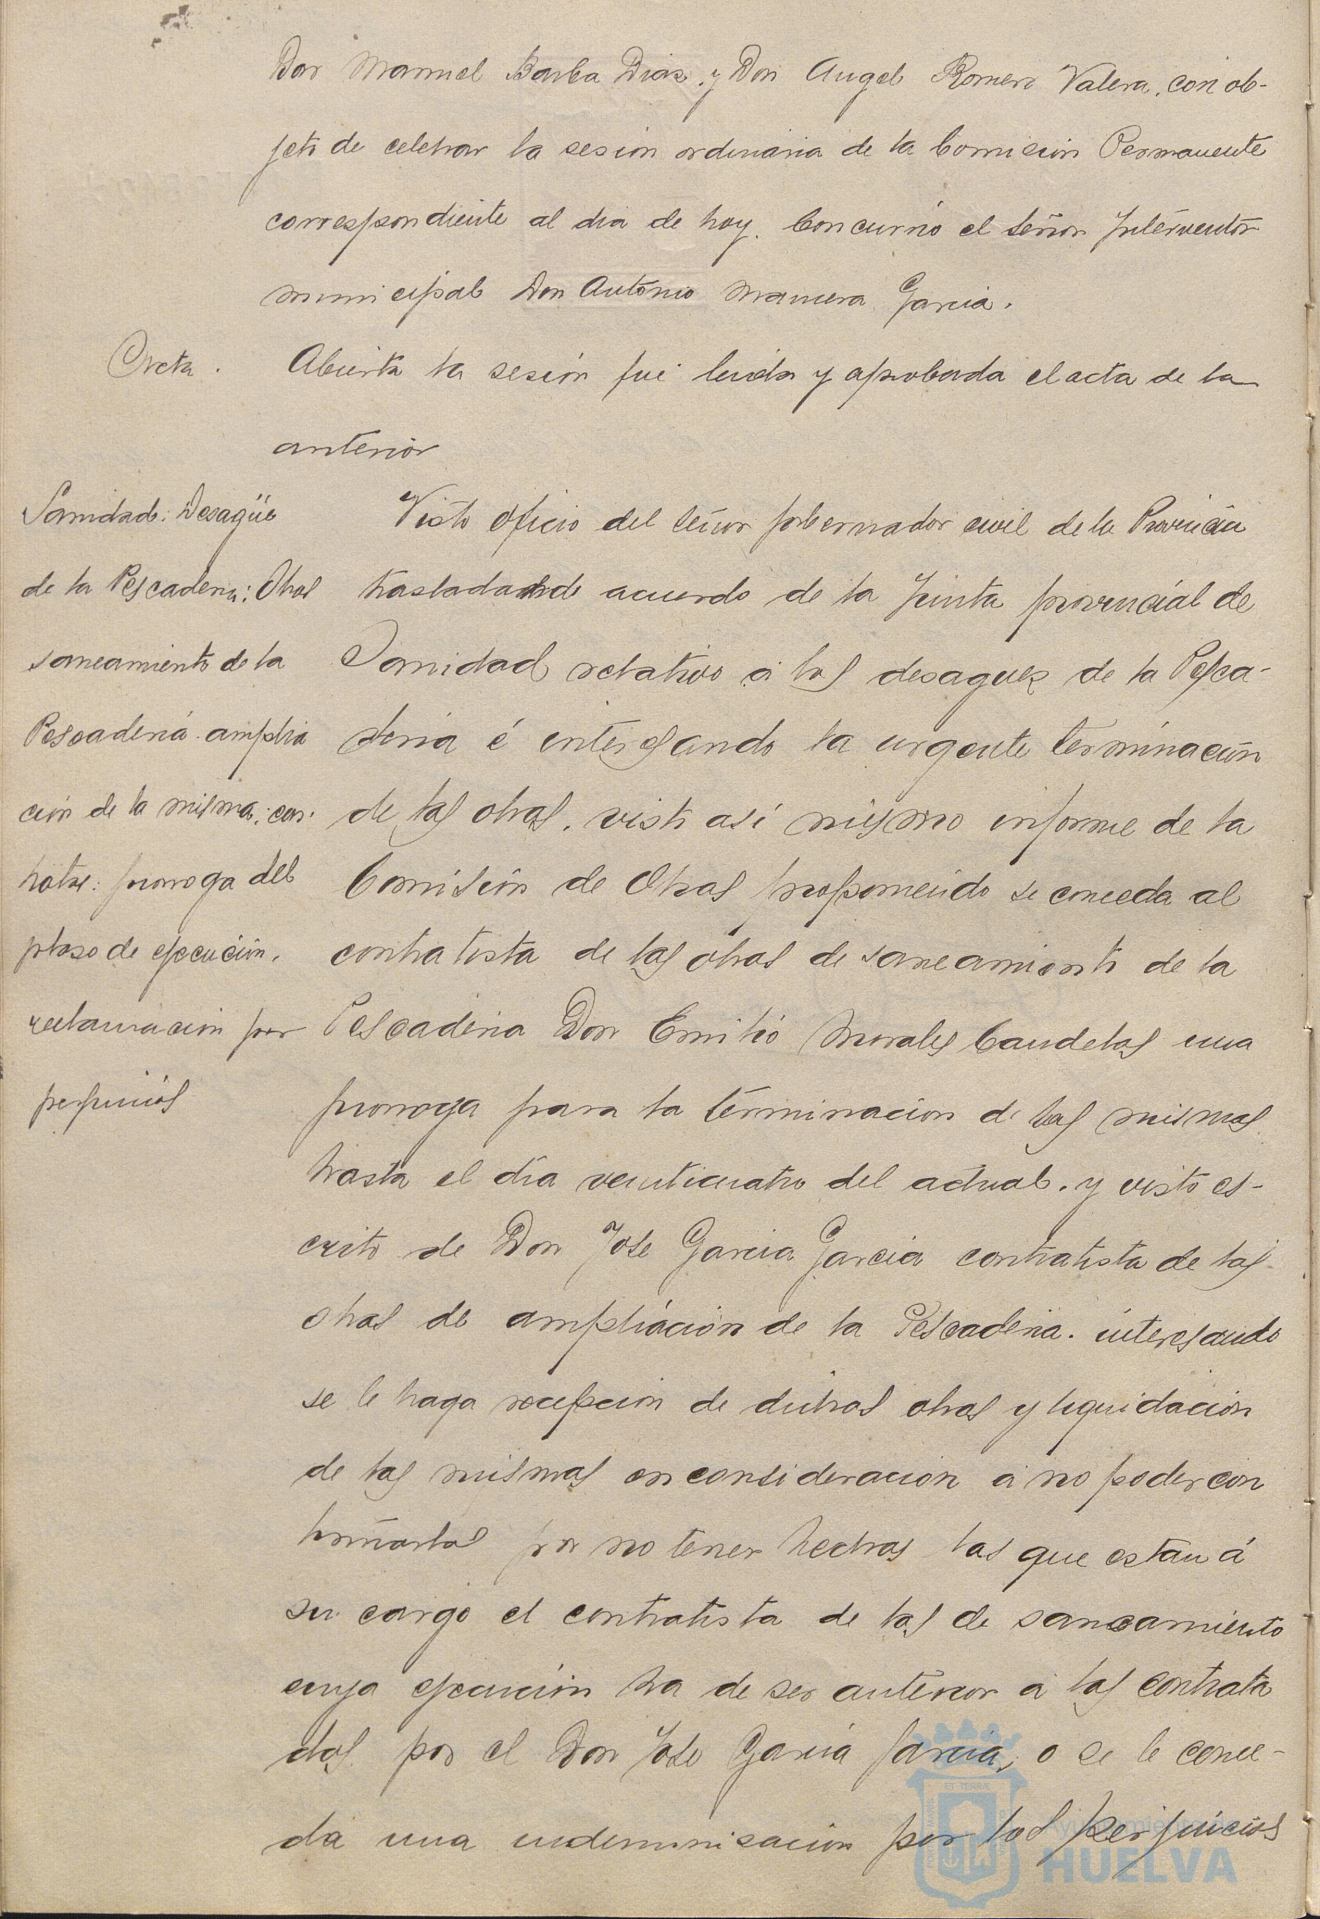 Don Manuel Barba Diaz y Don Angel Romero Valera, con ob-
jeto de celebrar la sesión ordinaria de la Comision Permanente
correspondiente al dia de hoy. Concurrió el señor Interventor
municipal Don Antonio Mancera Garcia.
Acta.
Abierta la sesión fué leida y aprobada el acta de la
anterior
Sanidad: Desagüe
de la Pescaderia: Obras
saneamiento de la
Pescaderia amplia
ción de la misma: con-
tratas: prorroga del
plazo de ejecución.
reclamación por
perjuicios
Visto oficio del señor gobernador civil de la Provincia
trasladando acuerdo de la Junta provincial de
Sanidad relativo a los desagues de la Pesca-
deria é interesando la urgente terminación
de las obras, visto así mismo informe de la
Comisión de Obras proponiendo se conceda al
contratista de las obras de saneamiento de la
Pescaderia Don Emilio Morales Candelas una
prorroga para la terminacion de las mismas
hasta el día veinticuatro del actual, y visto es-
crito de Don José Garcia Garcia contratista de las
obras de ampliación de la Pescaderia. interesando
se le haga recepción de dichas obras y liquidación
de las mismas en consideracion a no poder con
tinuarlas por no tener hechas las que estan á
su cargo el contratista de las de saneamiento
cuya ejecución ha de ser anterior a las contrata
das por el Don José Garcia Garcia, o se le conce-
da una indemnizacion por los perjuicios
Ayuntamiento
HUELVA